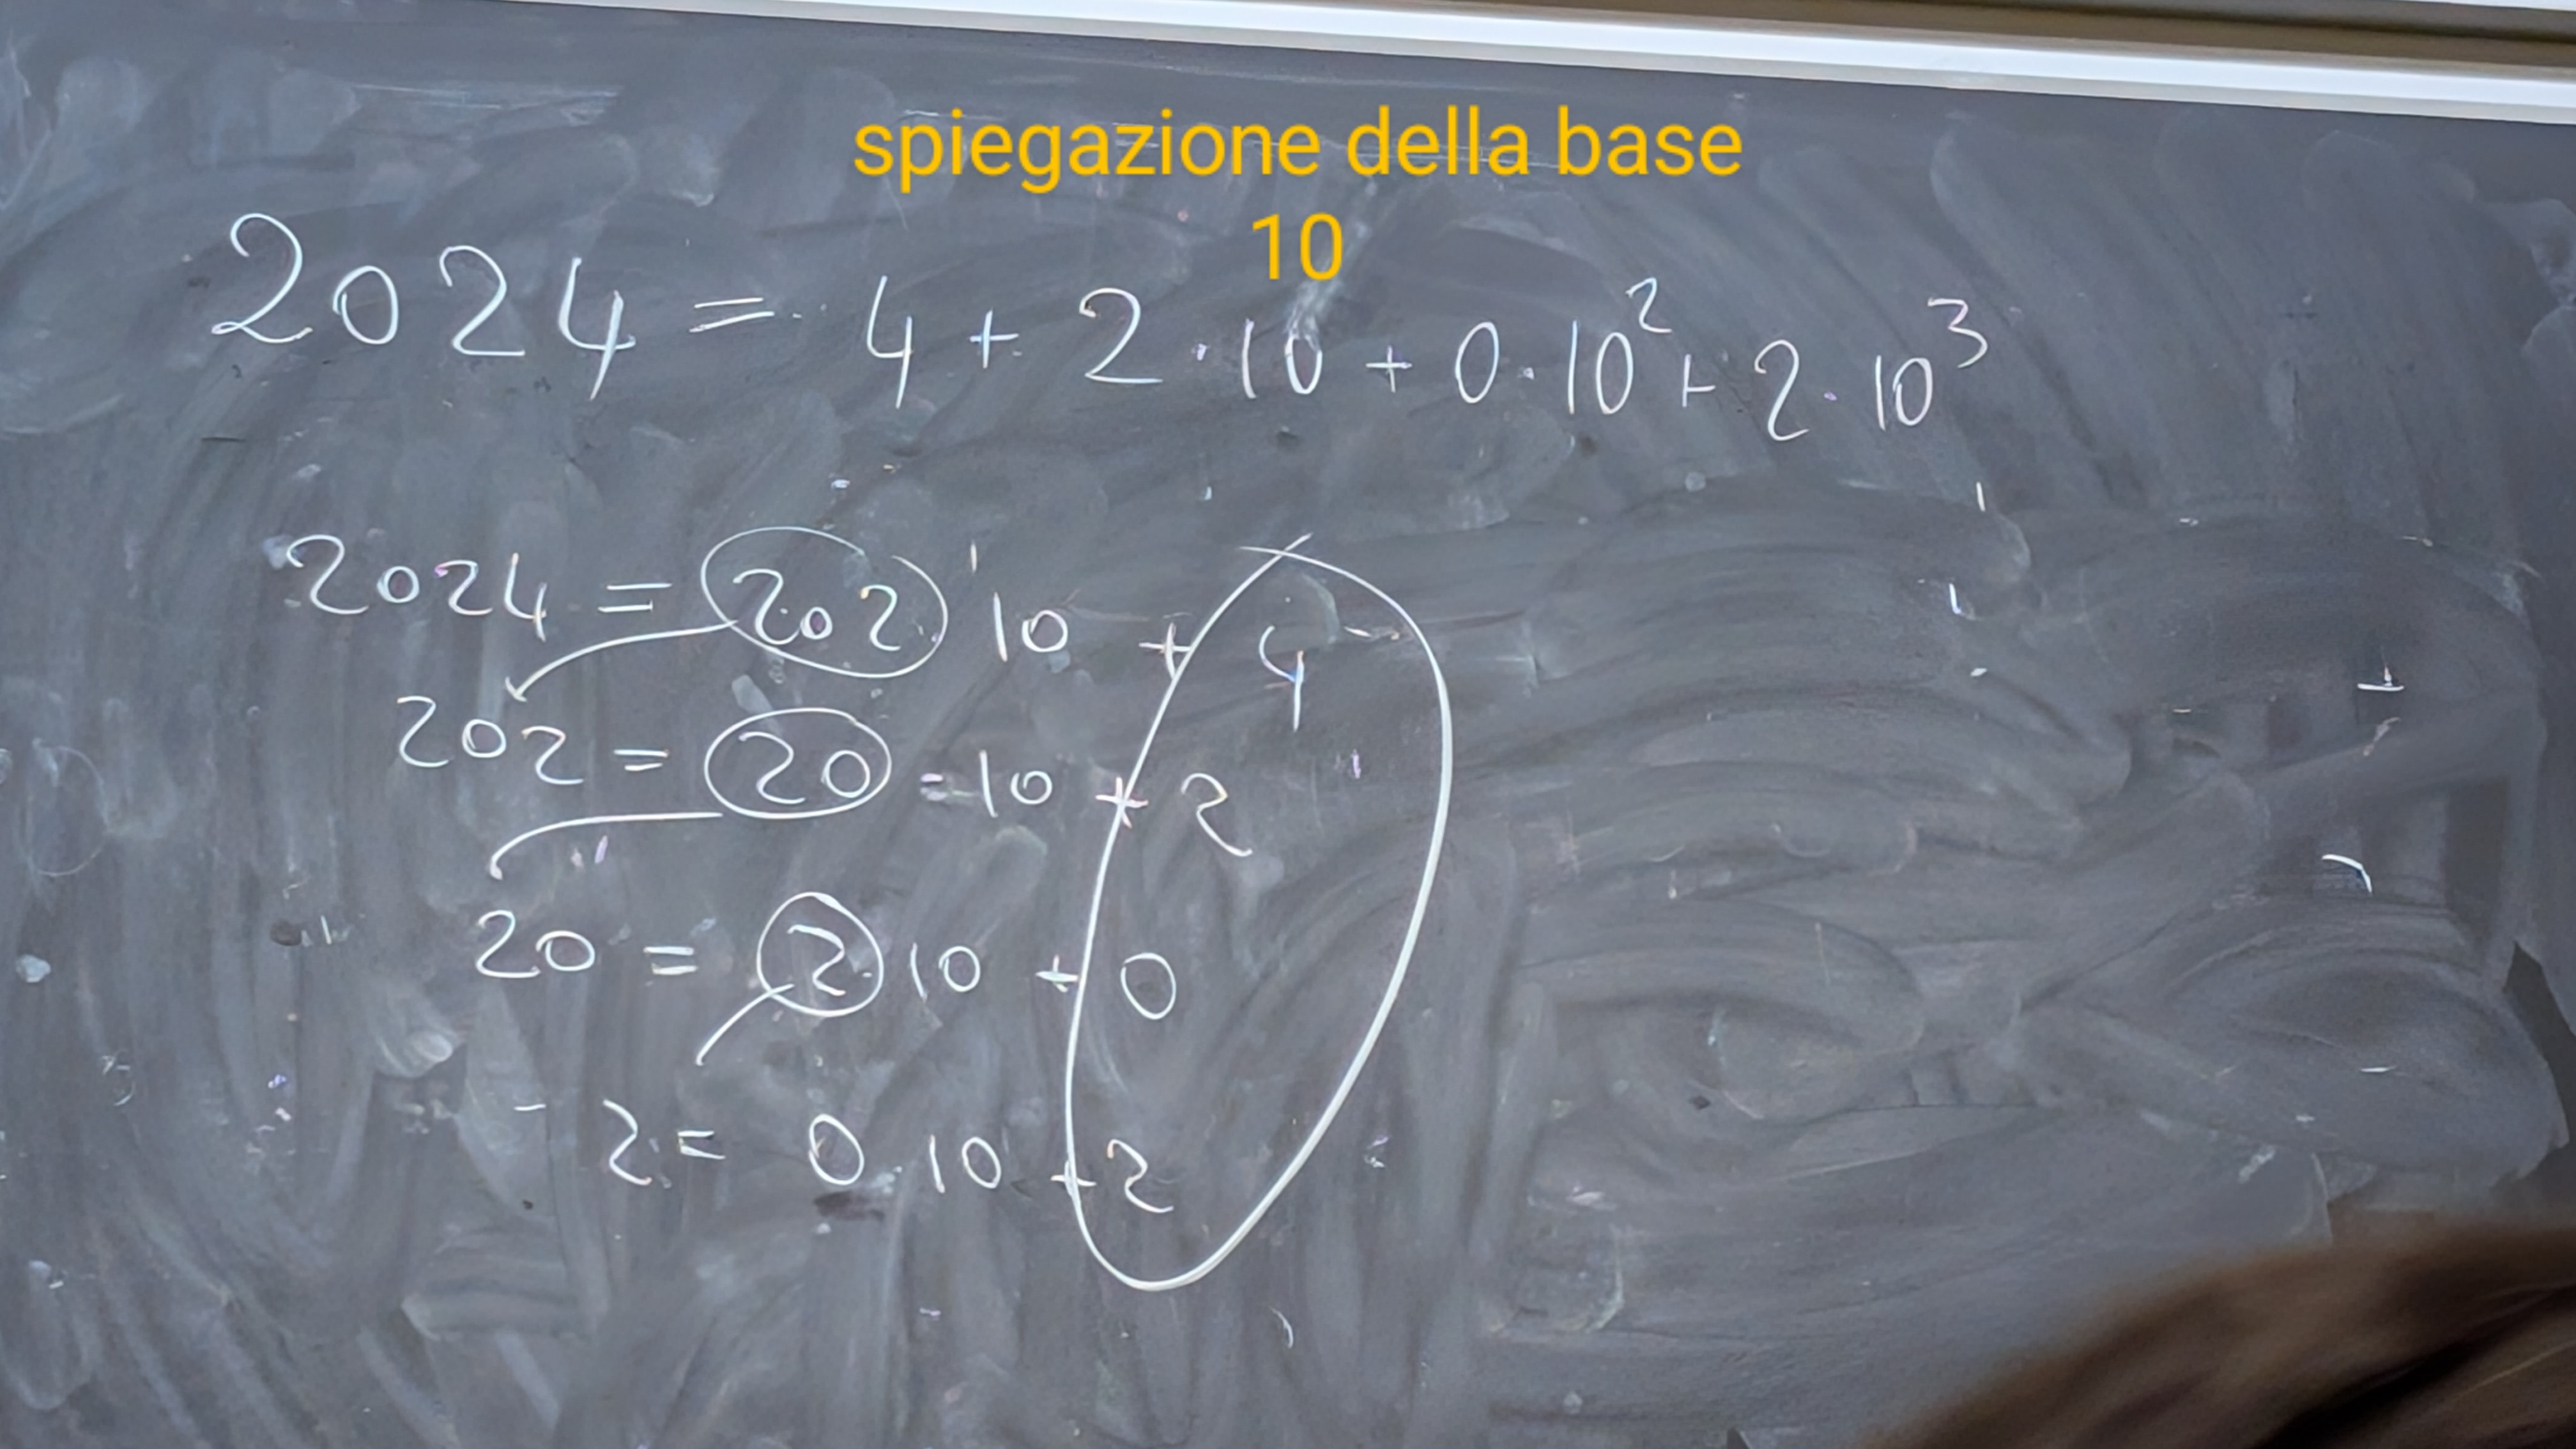 spiegazione della base
10
2024 = 4 + 2 · 10 + 0 · 10² + 2 · 10³
2024 = 202 10 + 4
202 = 20 · 10 + 2
20 = 2 10 + 0
2 = 0 10 + 2